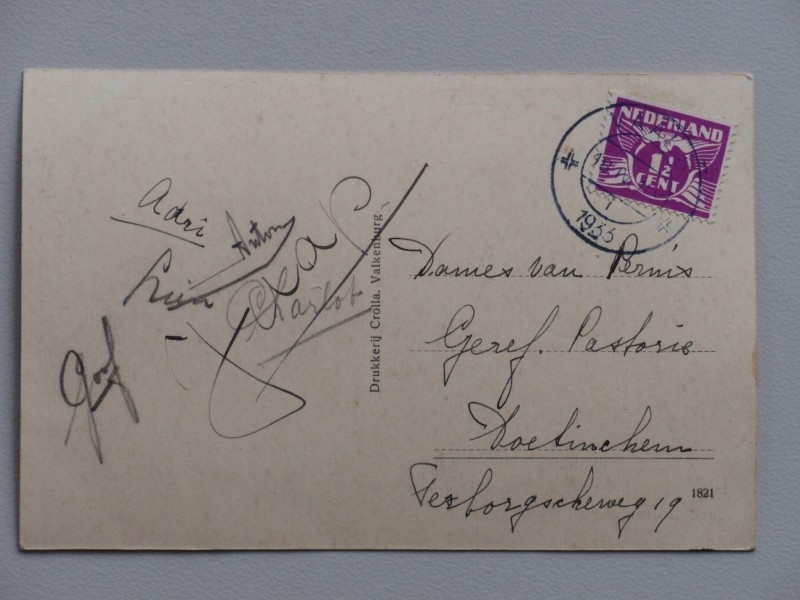 Adri
Anton
Lien
Charlot
Drukkerij Crolla. Valkenburg.
NEDERLAND
1½
CENT
1933
Dames van Pernis
Geref. Pastorie
Doetinchem
Terborgscheweg 19
1821